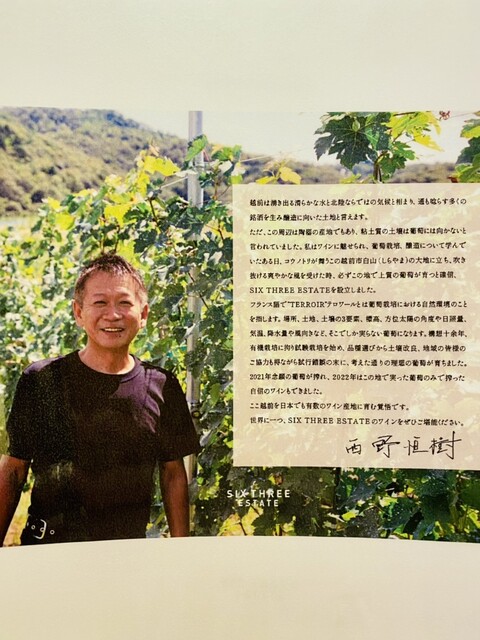 越前は湧き出る清らかな水と北陸ならではの気候と相まり、通も唸らす多くの
銘酒を生み醸造に向いた土地と言えます。
ただ、この周辺は陶器の産地でもあり、粘土質の土壌は葡萄には向かないと
言われていました。私はワインに魅せられ、葡萄栽培、醸造について学んで
いたある日、コウノトリが舞うこの越前市白山(しらやま)の大地に立ち、吹き
抜ける爽やかな風を受けた時、必ずこの地で上質の葡萄が育つと確信、
SIX THREE ESTATEを設立しました。
フランス語で"TERROIR"テロワールとは葡萄栽培における自然環境のこと
を指します。場所、土地、土壌の3要素、標高、方位太陽の角度や日照量、
気温、降水量や風向きなど、そこでしか実らない葡萄になります。構想十余年、
有機栽培に拘り試験栽培を始め、品種選びから土壌改良、地域の皆様の
ご協力も得ながら試行錯誤の末に、考えた通りの理想の葡萄が育ちました。
2021年念願の葡萄が搾れ、2022年はこの地で実った葡萄のみで搾った
自信のワインもできました。
ここ越前を日本でも有数のワイン産地に育む覚悟です。
世界に一つ、SIX THREE ESTATEのワインをぜひご堪能ください。
西野恒樹
SIX THREE
ESTATE